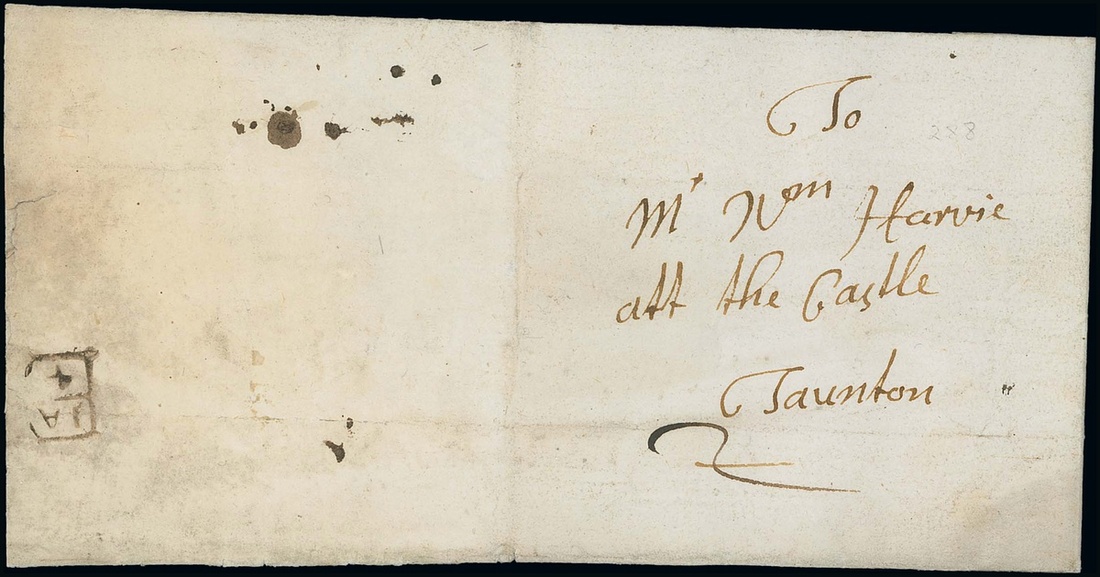 To
Mr Wm Harvie
att the Castle
Taunton
2
288